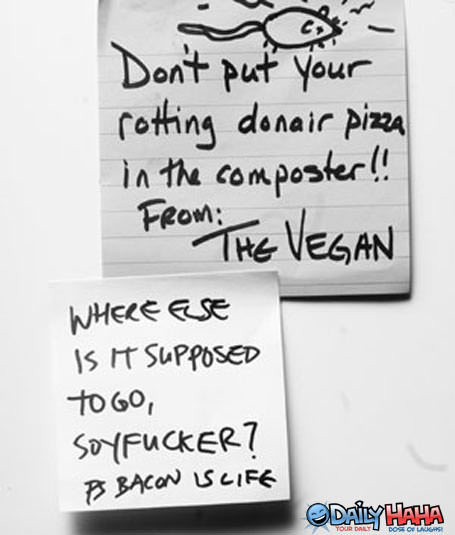 Don't put your
rotting donair pizza
in the composter!!
FROM:
THE VEGAN
WHERE ELSE
IS IT SUPPOSED
TO GO,
SOYFUCKER?
PS BACON IS LIFE
DAILY HAHA
YOUR DAILY DOSE OF LAUGHS!